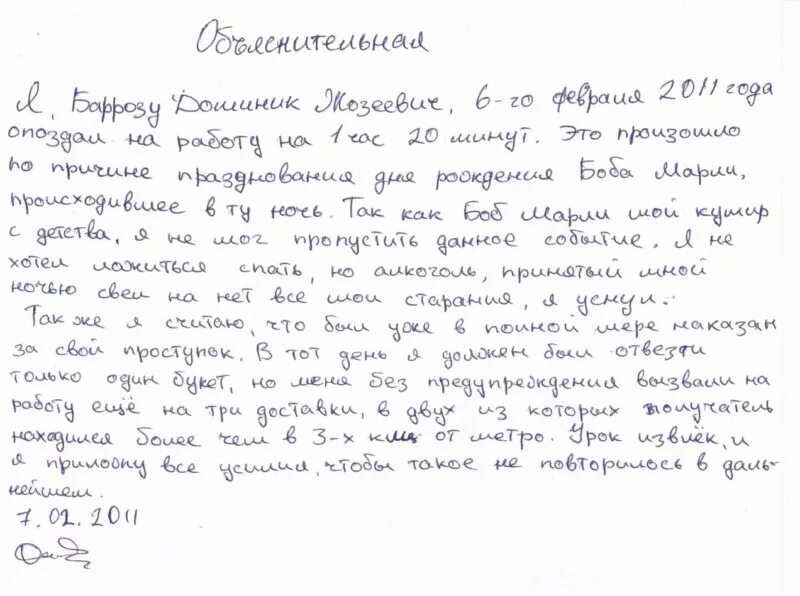 Объяснительная
Я, Баррозу Доминик Жозеевич, 6-го февраля 2011 года
опоздал на работу на 1 час 20 минут. Это произошло
по причине празднования дня рождения Боба Марли,
происходившее в ту ночь. Так как Боб Марли мой кумир
с детства, я не мог пропустить данное событие. Я не
хотел ложиться спать, но алкоголь, принятый мной
ночью свел на нет все мои старания, я уснул.
Так же я считаю, что был уже в полной мере наказан
за свой проступок. В тот день я должен был отвезти
только один букет, но меня без предупреждения вызвали на
работу ещё на три доставки, в двух из которых получатель
находился более чем в 3-х км от метро. Урок извлёк, и
я приложу все усилия, чтобы такое не повторилось в даль-
нейшем.
7.02.2011